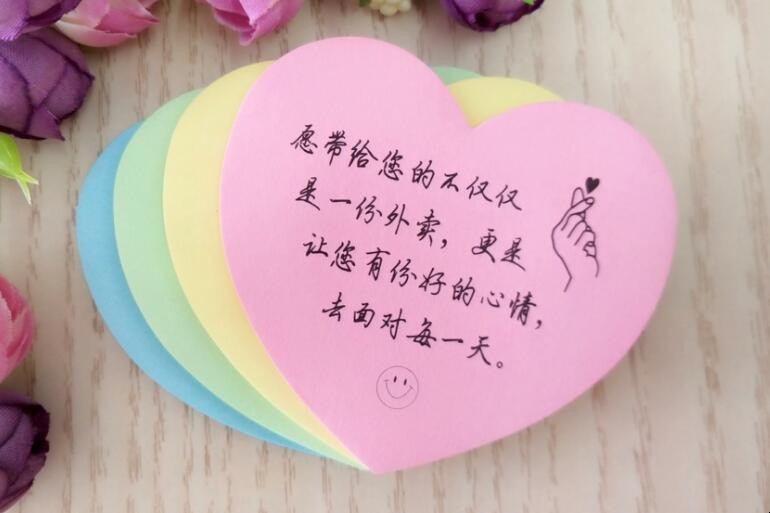 愿带给您的不仅仅
是一份外卖，更是
让您有份好的心情，
去面对每一天。